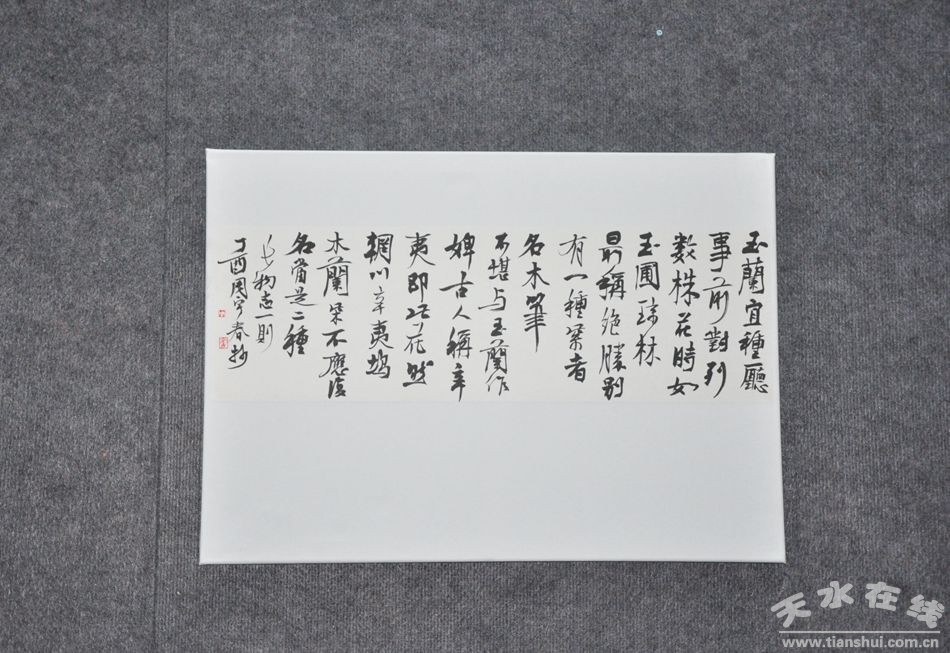 玉蘭宜種廳
事前對列
數株花時如
玉圃琼林
最稱绝勝别
有一種紫者
名木筆
不堪与玉蘭作
婢古人稱辛
夷即此花然
輞川辛夷塢
木蘭柴不應復
名當是二種
长物志一則
丁酉春抄
天水在线
www.tianshui.com.cn